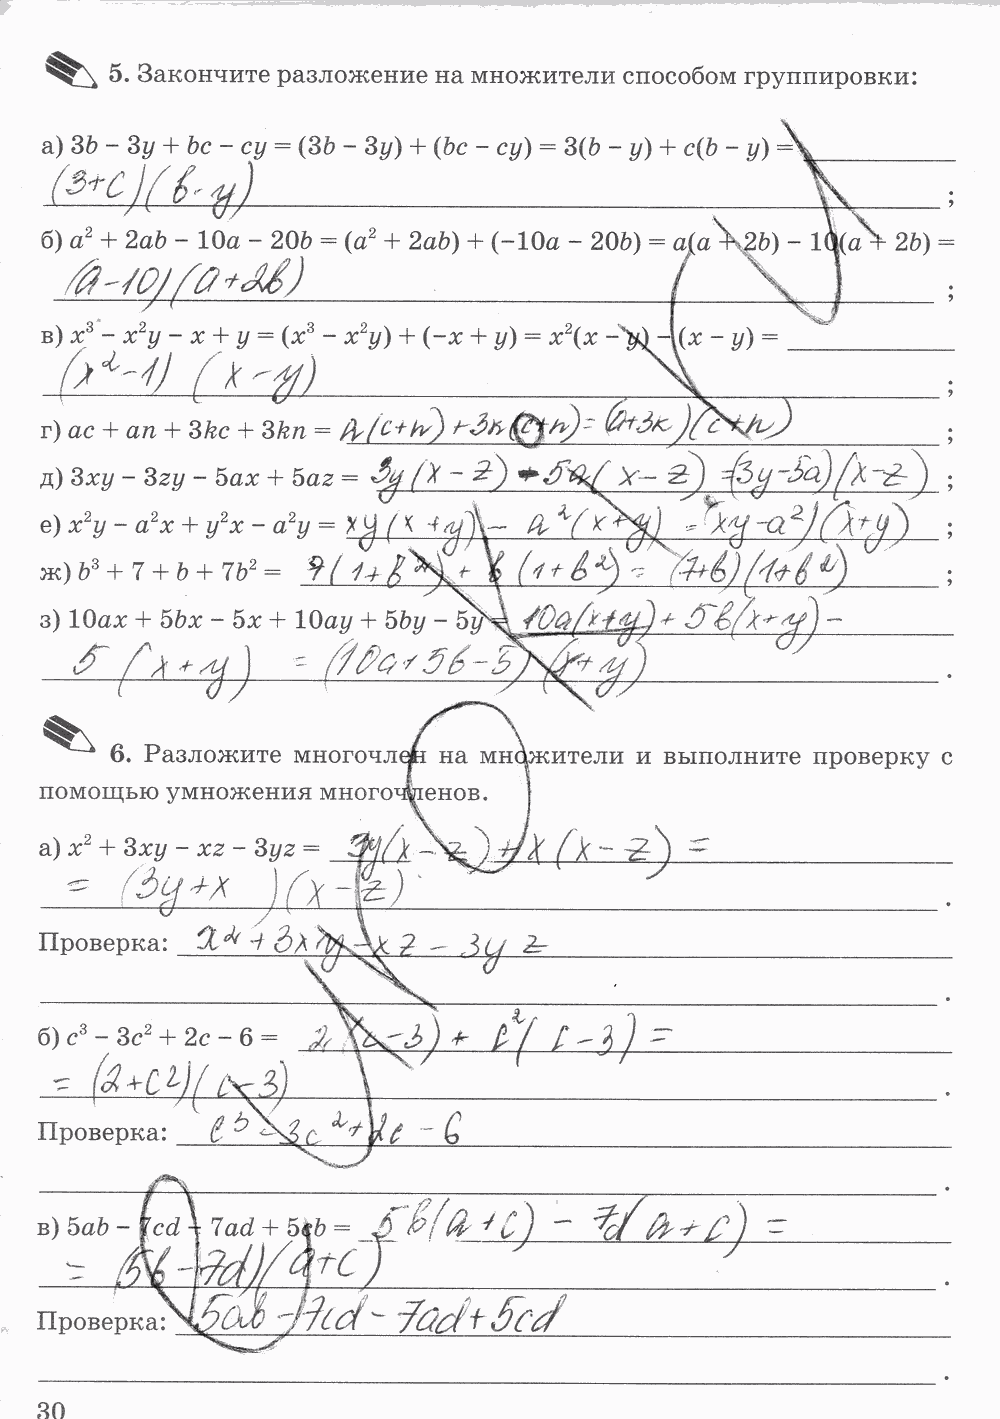 5. Закончите разложение на множители способом группировки:
а) 3b − 3y + bc − cy = (3b − 3y) + (bc − cy) = 3(b − y) + c(b − y) =
(3+c)(b-y) ;
б) a² + 2ab − 10a − 20b = (a² + 2ab) + (−10a − 20b) = a(a + 2b) − 10(a + 2b) =
(a-10)(a+2b) ;
в) x³ − x²y − x + y = (x³ − x²y) + (−x + y) = x²(x − y) − (x − y) =
(x²-1) (x-y) ;
г) ac + an + 3kc + 3kn = a(c+n)+3к(c+n)=(a+3к)(c+n) ;
д) 3xy − 3zy − 5ax + 5az = 3y(x-z) - 5a(x-z) =(3y-5a)(x-z) ;
е) x²y − a²x + y²x − a²y = xy(x+y) - a²(x+y) = (xy-a²)(x+y) ;
ж) b³ + 7 + b + 7b² = 7(1+b²) + b(1+b²) = (7+b)(1+b²) ;
з) 10ax + 5bx − 5x + 10ay + 5by − 5y = 10a(x+y) + 5b(x+y) -
5 (x+y) = (10a+5b-5)(x+y) .
6. Разложите многочлен на множители и выполните проверку с
помощью умножения многочленов.
а) x² + 3xy − xz − 3yz = 3y(x-z) + x(x-z) =
= (3y+x )(x-z) .
Проверка: x²+3xy-xz-3yz
.
б) c³ − 3c² + 2c − 6 = 2(c-3) + c²(c-3) =
= (2+c²)(c-3) .
Проверка: c³-3c²+2c-6
.
в) 5ab − 7cd − 7ad + 5cb = 5b(a+c) - 7d(a+c) =
= (5b-7d)(a+c) .
Проверка: 5ab-7cd-7ad+5cd
.
30